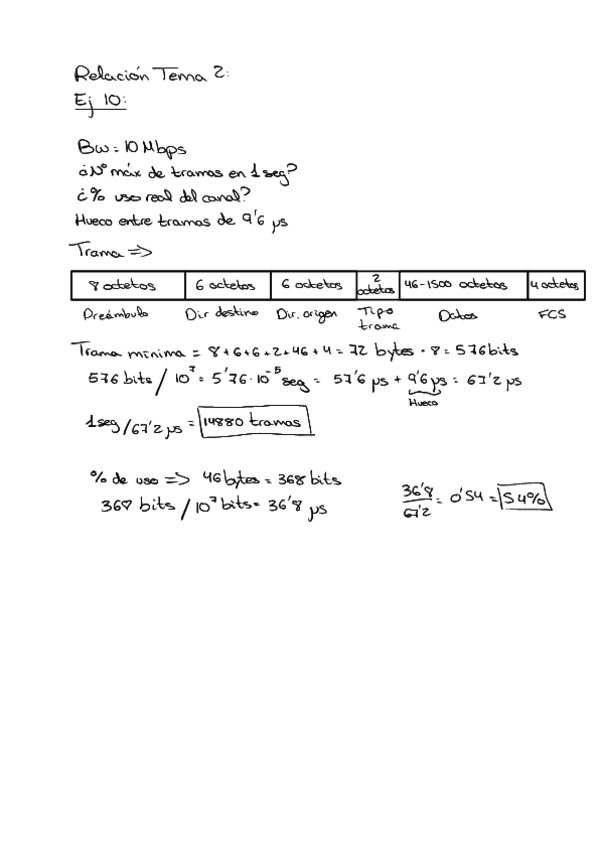 Relación Tema 2:
Ej 10:
Bw = 10 Mbps
¿Nº máx de tramas en 1 seg?
¿% uso real del canal?
Hueco entre tramas de 9'6 µs
Trama =>
8 octetos 6 octetos 6 octetos 2 octetos 46-1500 octetos 4 octetos
Preámbulo Dir destino Dir. origen Tipo trama Datos FCS
Trama mínima = 8+6+6+2+46+4 = 72 bytes · 8 = 576 bits
576 bits / 10⁷ = 5'76·10⁻⁵ seg = 57'6 µs + 9'6 µs = 67'2 µs
Hueco
1 seg / 67'2 µs = 14880 tramas
% de uso => 46 bytes = 368 bits
368 bits / 10⁷ bits = 36'8 µs
36'8 / 67'2 = 0'54 = 54%